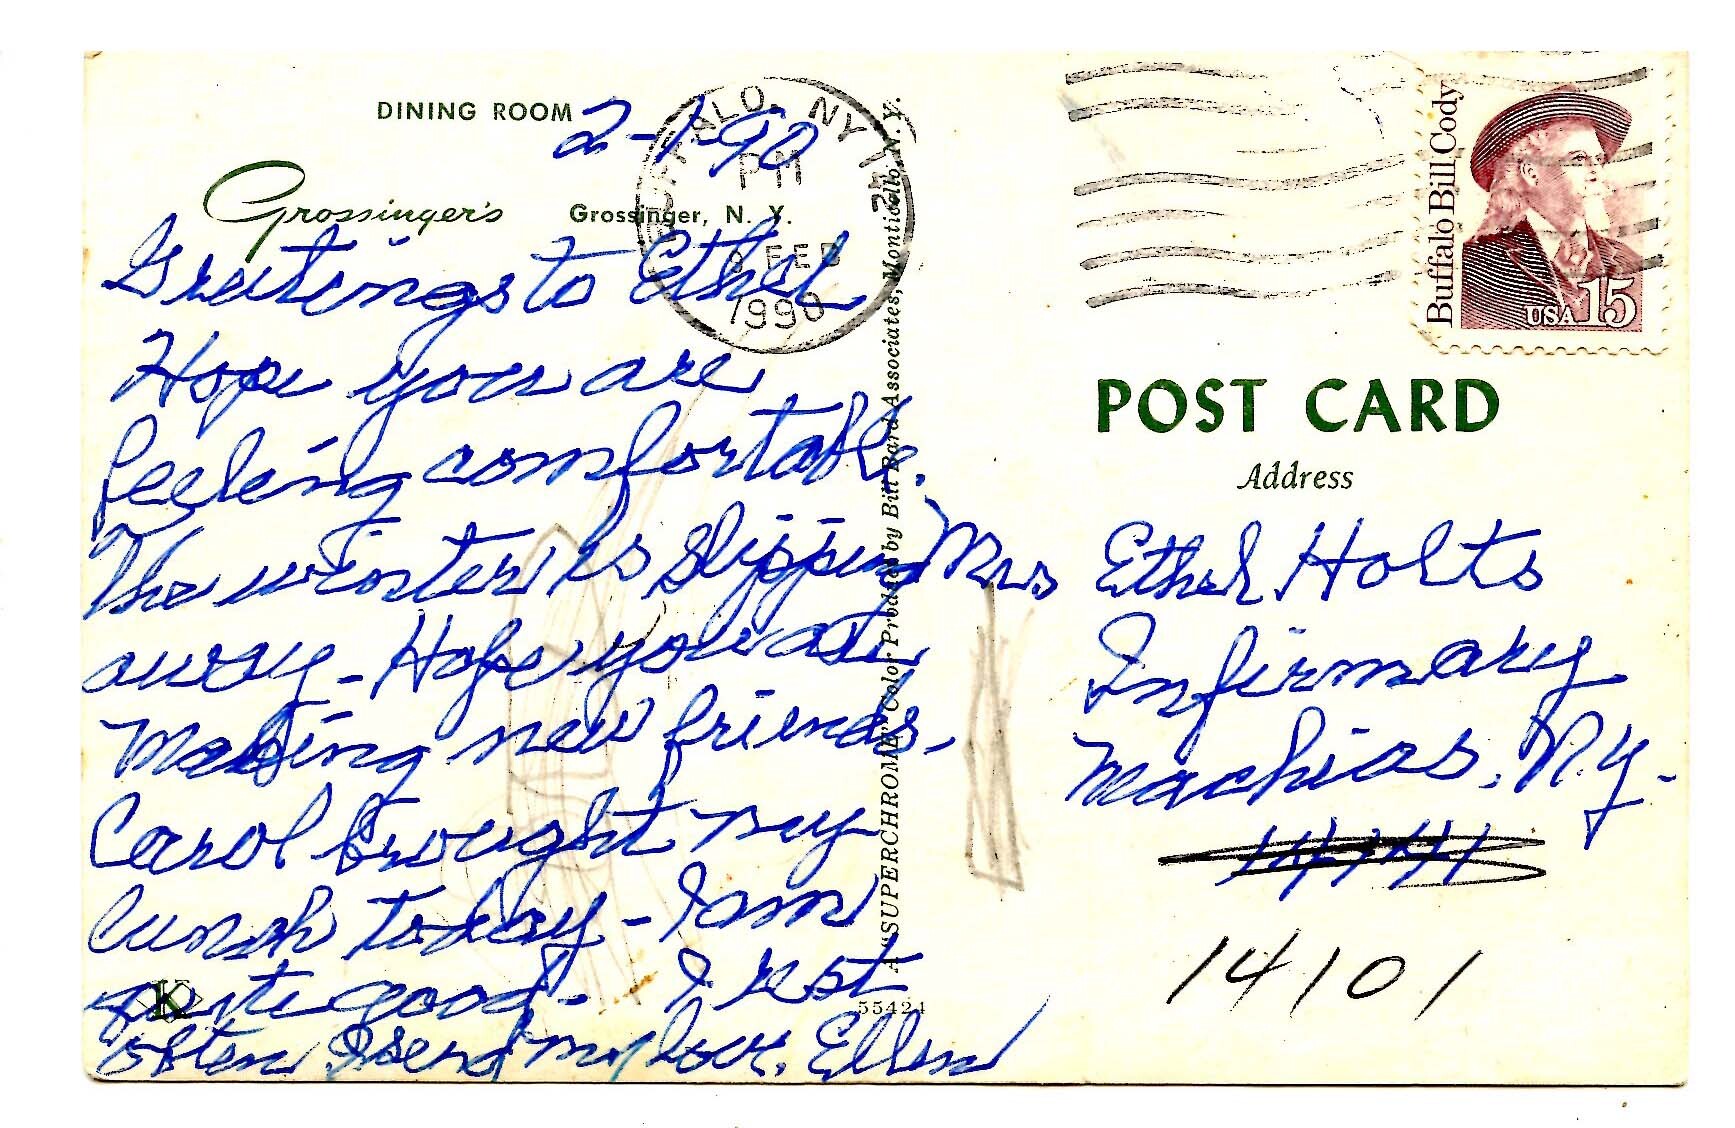 DINING ROOM
2-1-90
Grossinger's Grossinger, N. Y.
Greetings to Ethel
Hope you are
feeling comfortable.
The winter is slipping
away - Hope you are
making new friends.
Carol brought my
lunch today - I am
quite good - I rest
often I send my love. Ellen
K
55424
A "SUPERCHROME" Color Product by Bill Bard Associates, Monticello, N. Y.
BUFFALO, NY 142
PM
FEB
1990
Buffalo Bill Cody
USA 15
POST CARD
Address
Mrs Ethel Holts
Infirmary
Machias, N.Y.
14101